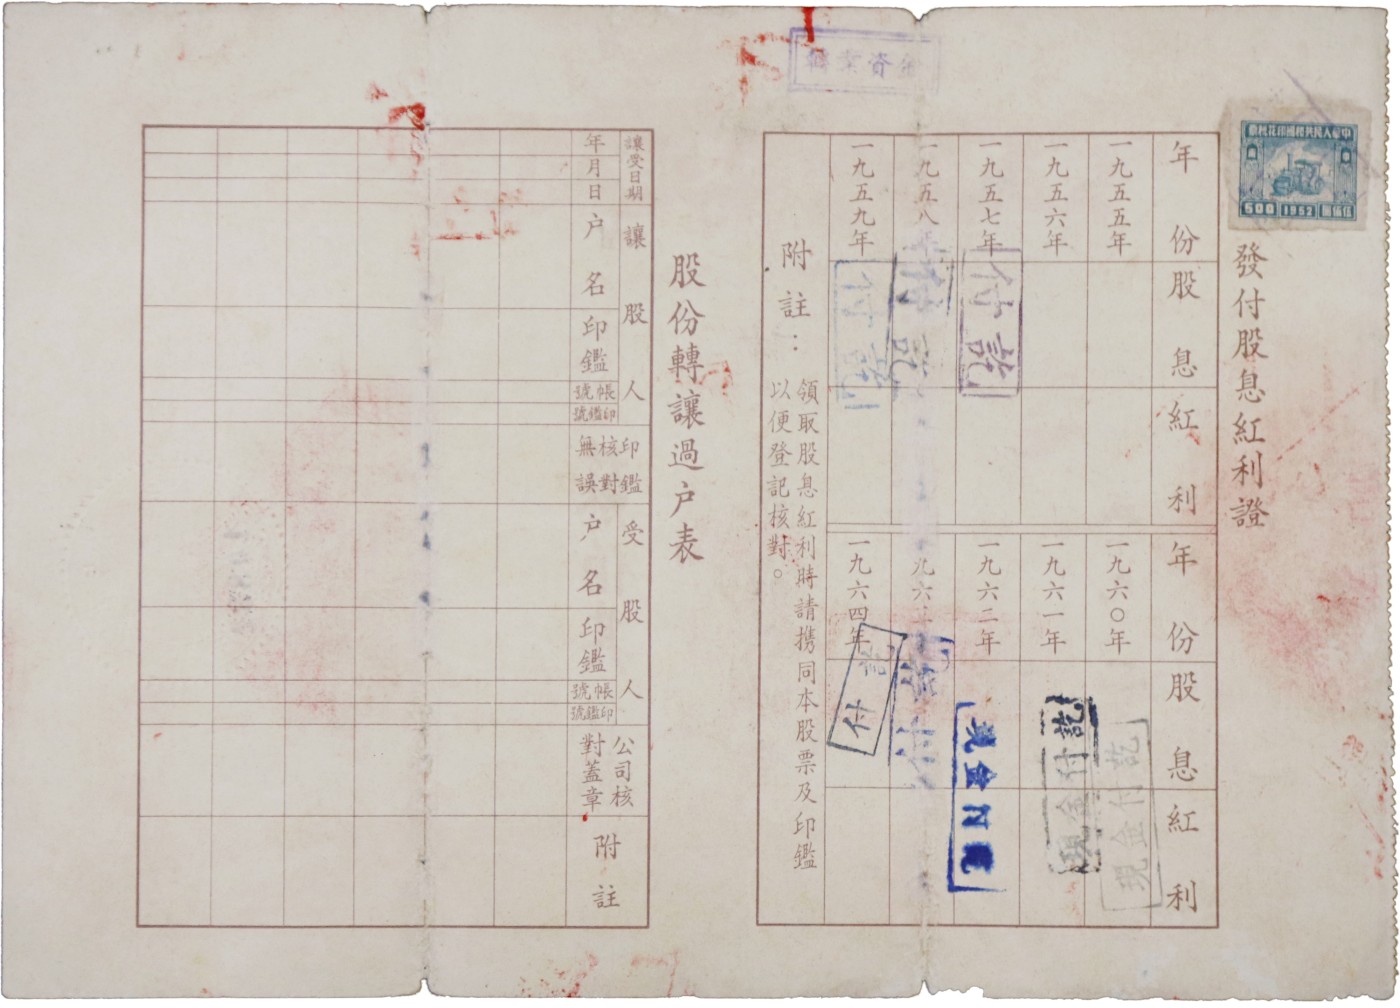 中華人民共和國印花稅票
500
1952
伍佰圓
發付股息紅利證
年份
股息
紅利
年份
股息
紅利
一九五五年
一九六〇年
現金付訖
一九五六年
一九六一年
現金付訖
一九五七年
付訖
一九六二年
現金付訖
一九五八年
付訖
一九六三
付
一九五九年
付訖
一九六四年
付訖
附註：
領取股息紅利時請携同本股票及印鑑
以便登記核對。
股份轉讓過户表
讓受日期
年
月
日
讓股人
户名
印鑑
帳號
印鑑號
印鑑
核對
無誤
受股人
户名
印鑑
帳號
印鑑號
公司核
對蓋章
附註